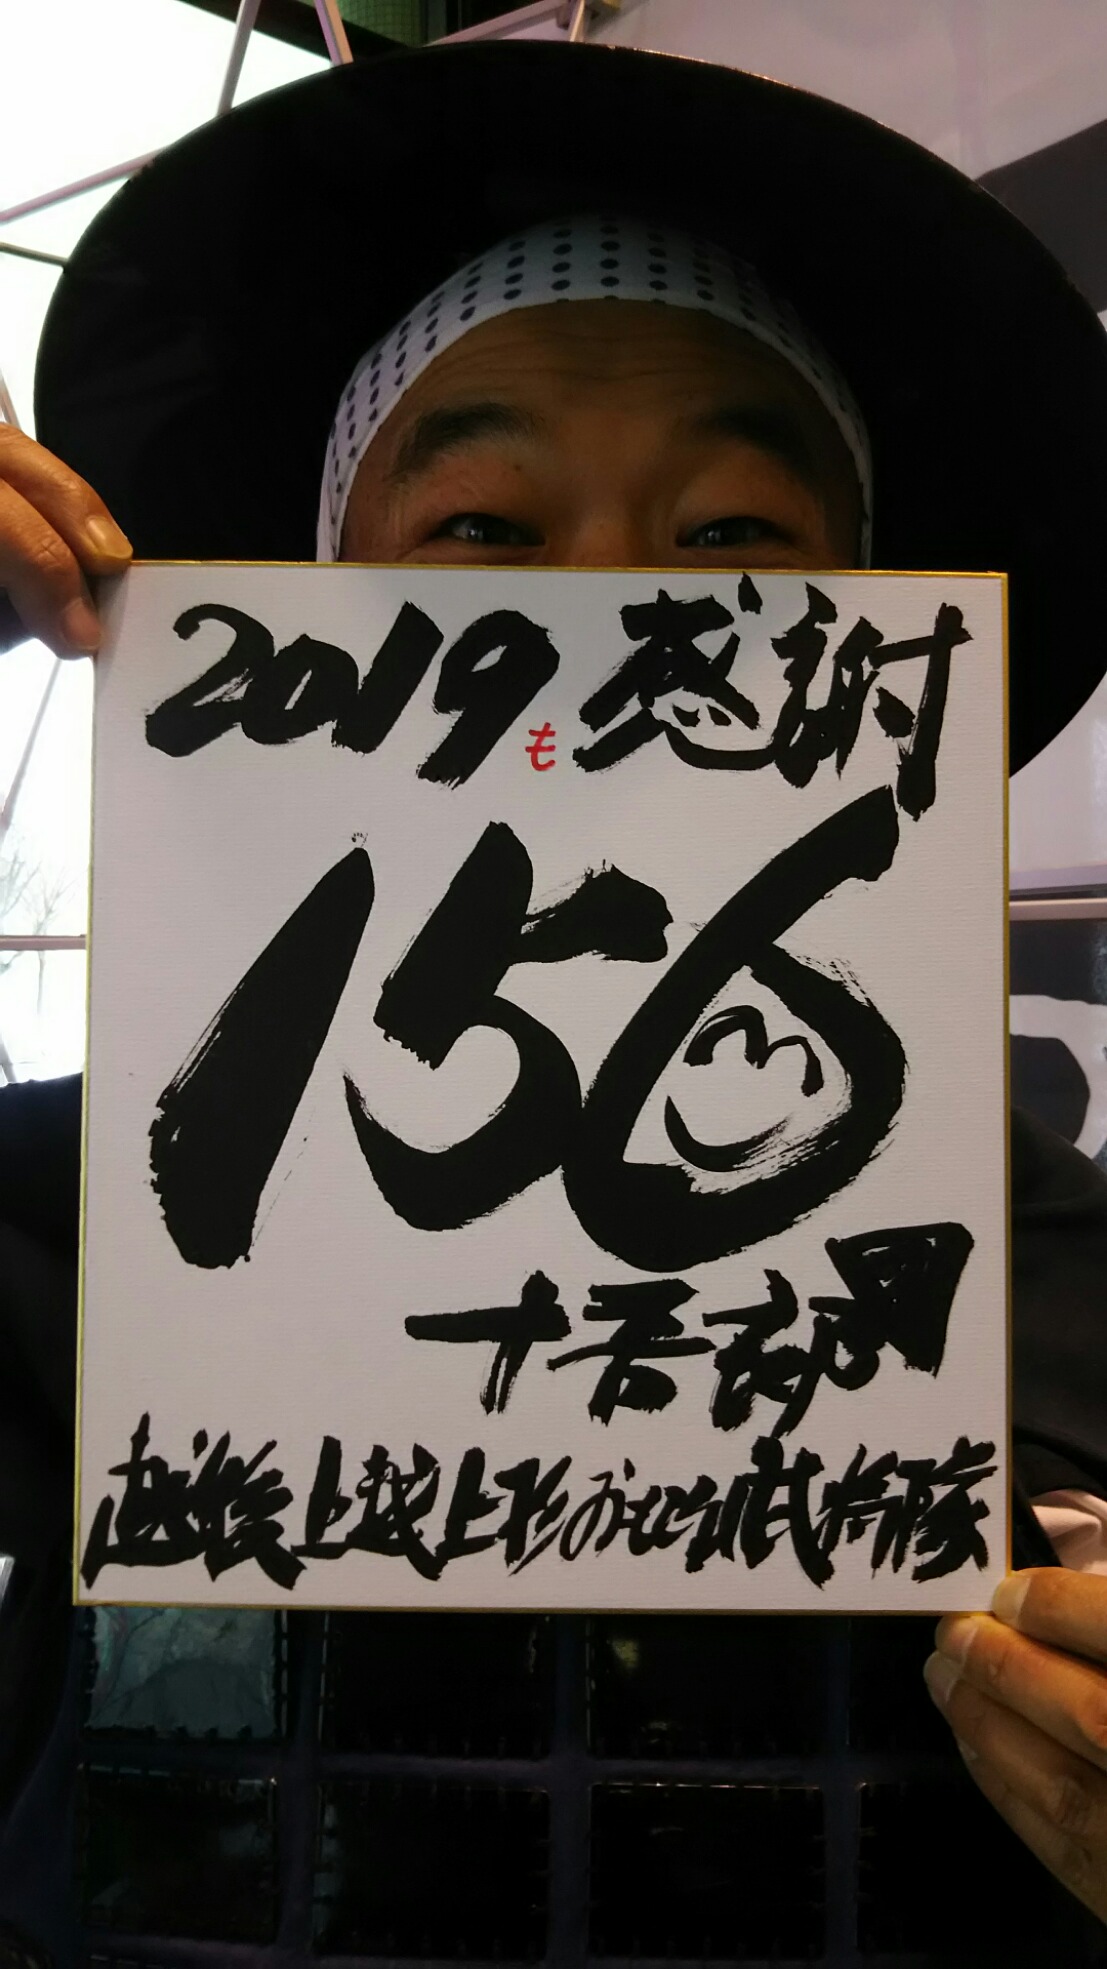 2019も感謝
156
越後上越上杉おもてなし武将隊